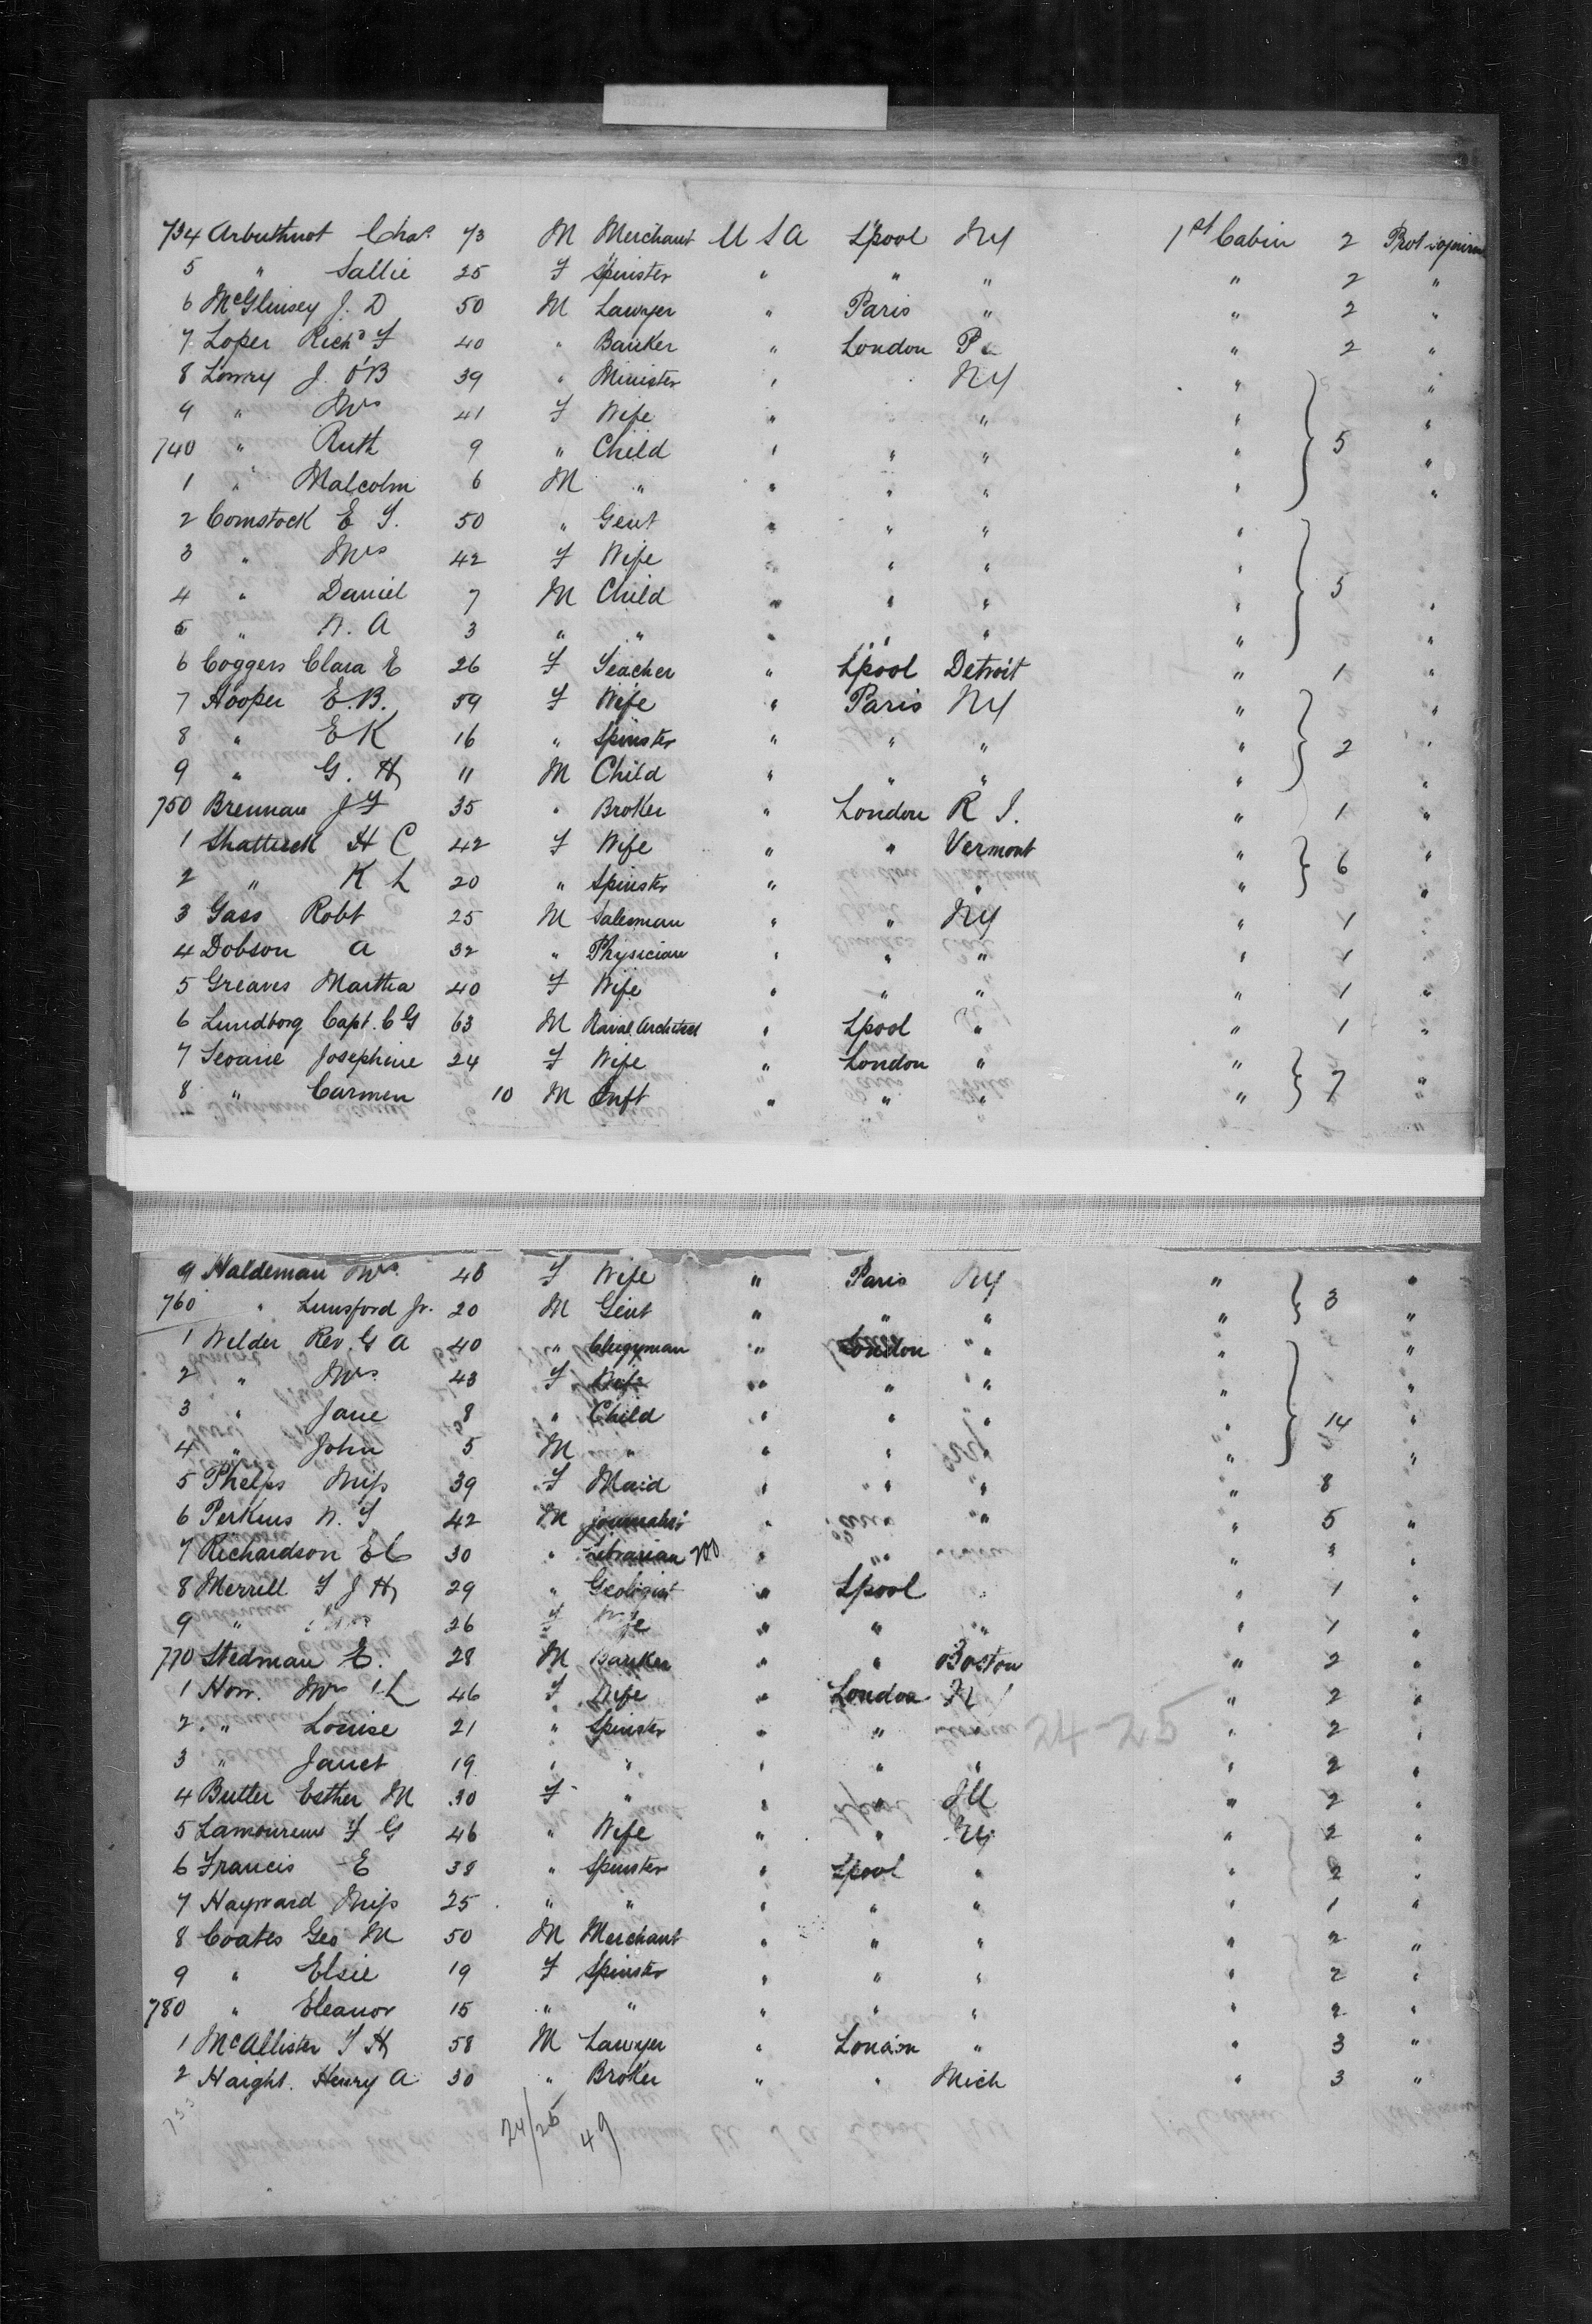 734 Arbuthnot Chas. 73 M Merchant U S A L'pool NY 1st Cabin 2 Prot sojourn
5 " Sallie 25 F Spinster " " " " 2 "
6 McGlinsey J. D 50 M Lawyer " Paris " " 2 "
7 Loper Richd F 40 " Banker " London Pa " 2 "
8 Lowry J. O'B 39 " Minister " NY " "
9 " Mrs 41 F Wife " " " "
740 " Ruth 9 " Child " " " " 5 "
1 " Malcolm 6 M " " " " " "
2 Comstock E S. 50 " Gent " " " "
3 " Mrs 42 F Wife " " " "
4 " Daniel 7 M Child " " " " 5 "
5 " N. A 3 " " " " " " "
6 Coggers Clara E 26 F Teacher " L'pool Detroit " 1 "
7 Hooper E. B. 59 F Wife " Paris NY " "
8 " E K 16 " Spinster " " " " 2 "
9 " G. H 11 M Child " " " " "
750 Brennan J F 35 " Broker " London R I. " 1 "
1 Shattuck H C 42 F Wife " " Vermont " 6 "
2 " K L 20 " Spinster " " " "
3 Gass Robt 25 M Salesman " " NY " 1 "
4 Dobson A 32 " Physician " " " " 1 "
5 Greaves Martha 40 F Wife " " " " 1 "
6 Lundborg Capt. C G 63 M Naval Architect " L'pool " " 1 "
7 Seoane Josephine 24 F Wife " London " " 7 "
8 " Carmen 10 M Inft " " " " "
9 Haldeman Mrs. 48 F Wife " Paris NY " 3 "
760 " Lunsford Jr. 20 M Gent " " " " "
1 Welder Rev. G A 40 " Clergyman " London " " "
2 " Mrs. 43 F Wife " " " " "
3 " Jane 8 " Child " " " " 14 "
4 " John 5 M " " " " " "
5 Phelps Miss 39 F Maid " " " " 8
6 Perkins N. S 42 M journalist " Paris " " 5 "
7 Richardson E C 30 " Librarian " " " "
8 Merrill F J H 29 " Geologist " L'pool " " 1 "
9 " 26 F Wife " " " " 1 "
770 Stedman E. 28 M Banker " " Boston " 2 "
1 Horr. Mrs L 46 F Wife " London N " 2 "
2 " Louise 21 " Spinster " " 24-25 " 2 "
3 " Janet 19 " " " " " " 2 "
4 Butler Esther M 30 F " " " Ill " 2 "
5 Lamoureux F G 46 " Wife " " NY " 2 "
6 Francis E 38 " Spinster " L'pool " " 2 "
7 Hayward Miss 25 " " " " " " 1 "
8 Coates Geo M 50 M Merchant " " " " 2 "
9 " Elsie 19 F Spinster " " " " 2 "
780 " Eleanor 15 " " " " " " 2 "
1 McAllister S H 58 M Lawyer " London " " 3 "
2 Haight. Henry A 30 " Broker " " Mich " 3 "
24/25 49